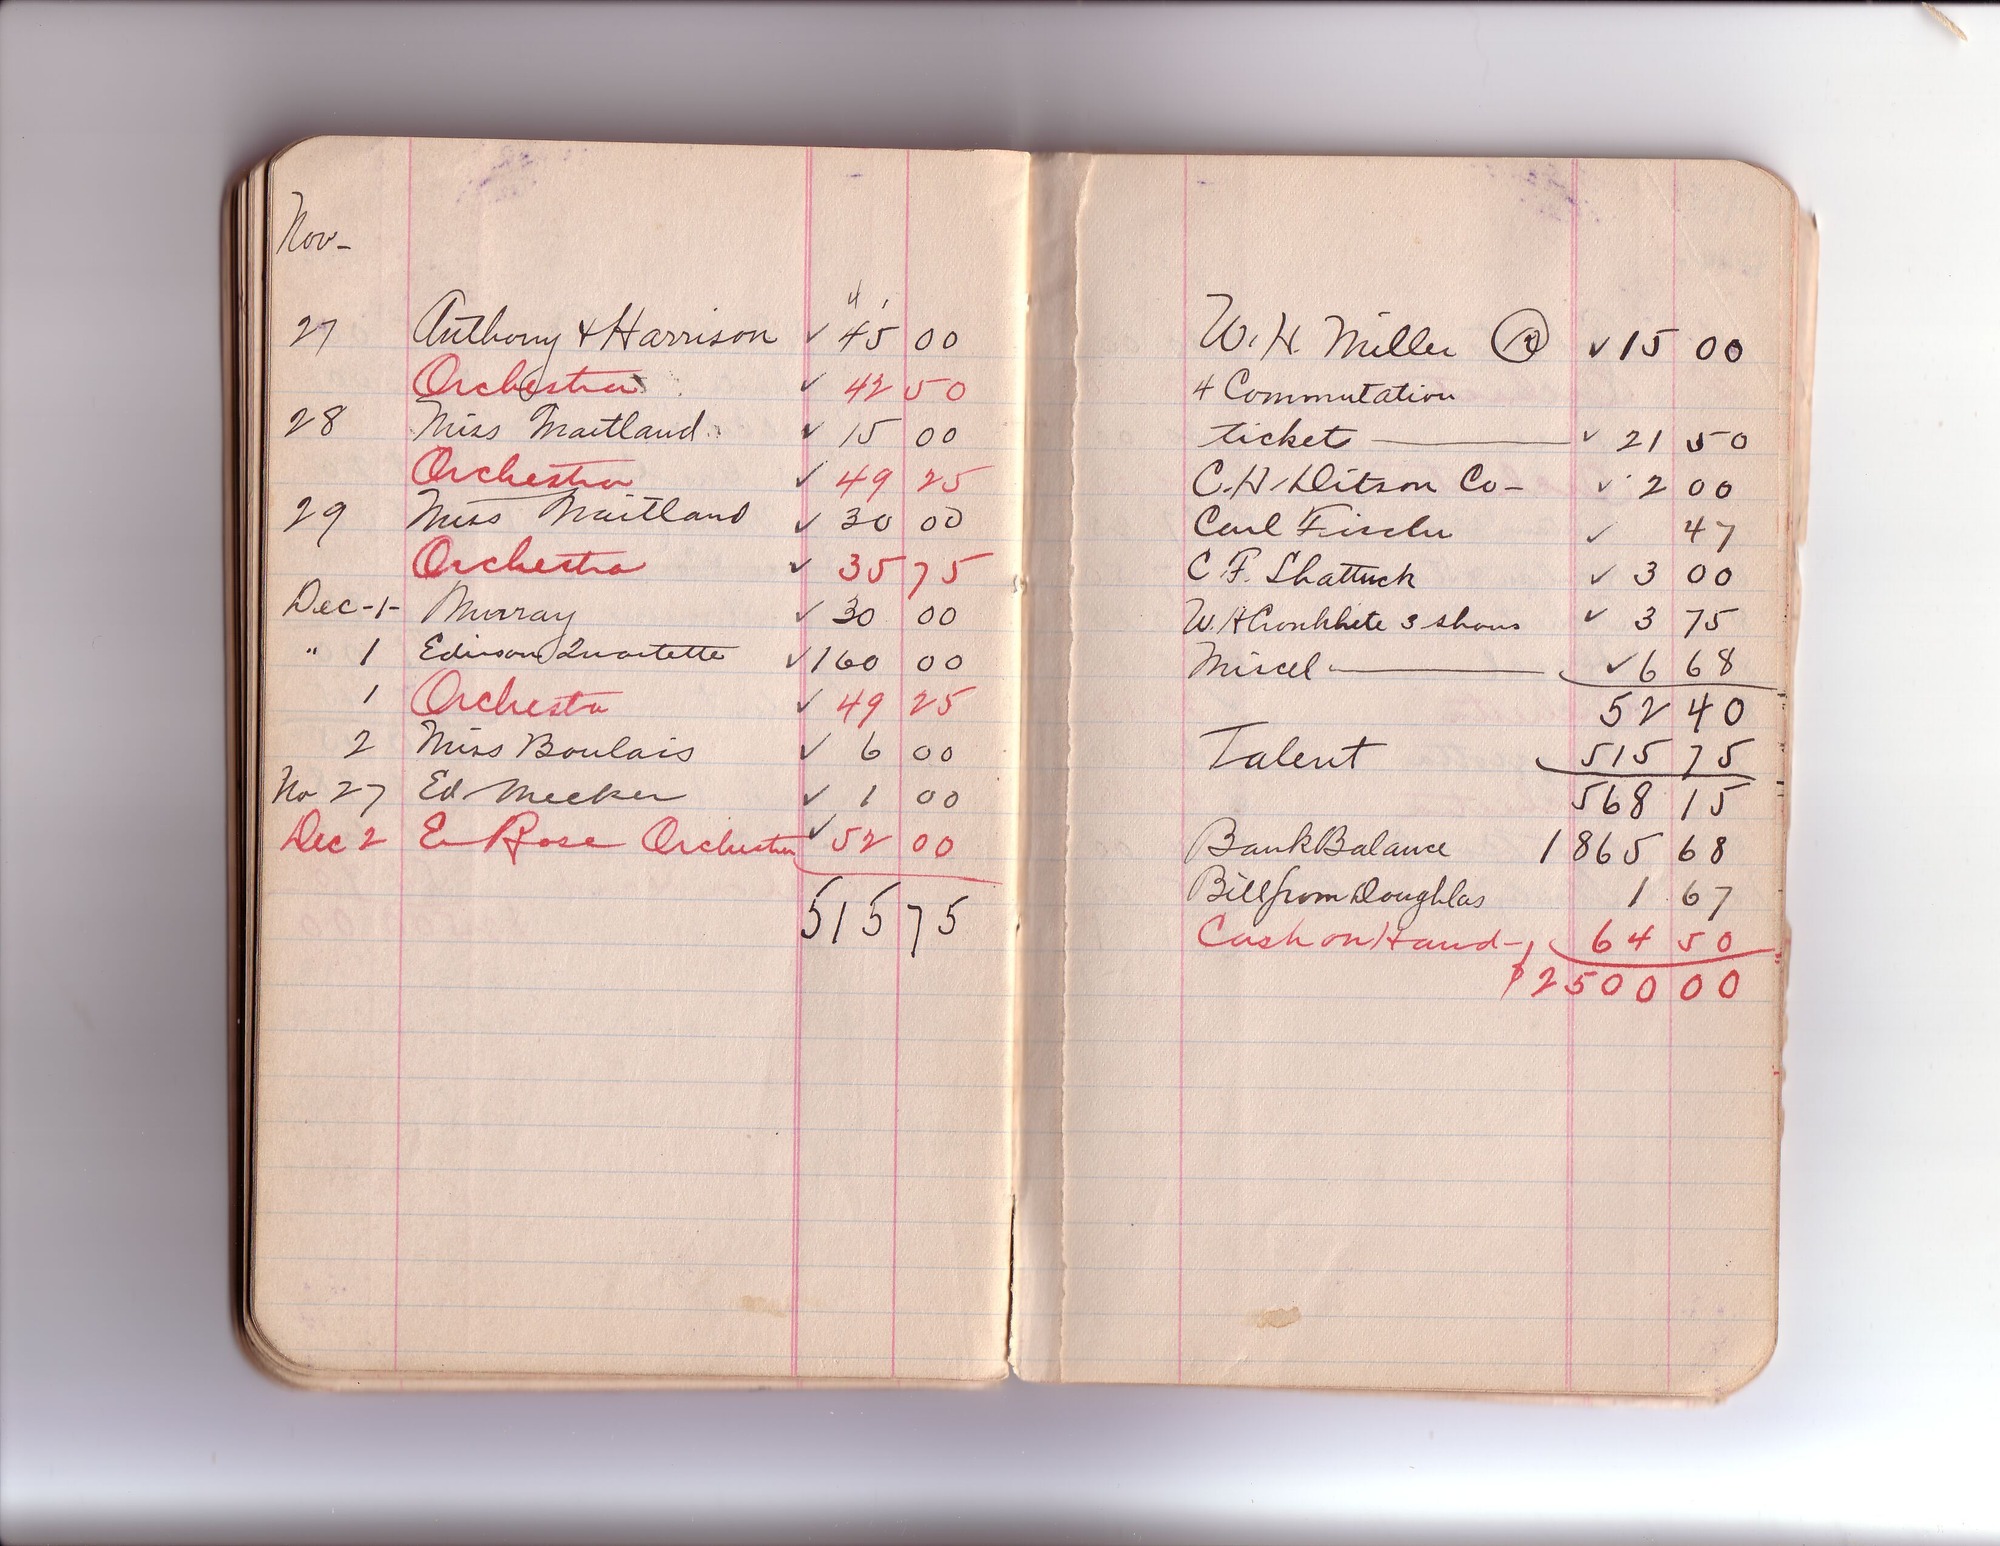 Nov-
27 Anthony & Harrison ✓ 45 00
Orchestra ✓ 42 50
28 Miss Maitland ✓ 15 00
Orchestra ✓ 49 25
29 Miss Maitland ✓ 30 00
Orchestra ✓ 35 75
Dec-1- Murray ✓ 30 00
" 1 Edison Quartette ✓ 160 00
1 Orchestra ✓ 49 25
2 Miss Boulais ✓ 6 00
No 27 Ed Meeker ✓ 1 00
Dec 2 E Rose Orchestra ✓ 52 00
515 75
W. H. Miller ✓ 15 00
4 Commutation
tickets ✓ 21 50
C. H. Ditson Co- ✓ 2 00
Carl Fischer ✓ 47
C. F. Shattuck ✓ 3 00
W. H Cronkhite 3 shows ✓ 3 75
Miscel ✓ 6 68
52 40
Talent 515 75
568 15
Bank Balance 1865 68
Bill from Doughlas 1 67
Cash on Hand- 64 50
$2500 00